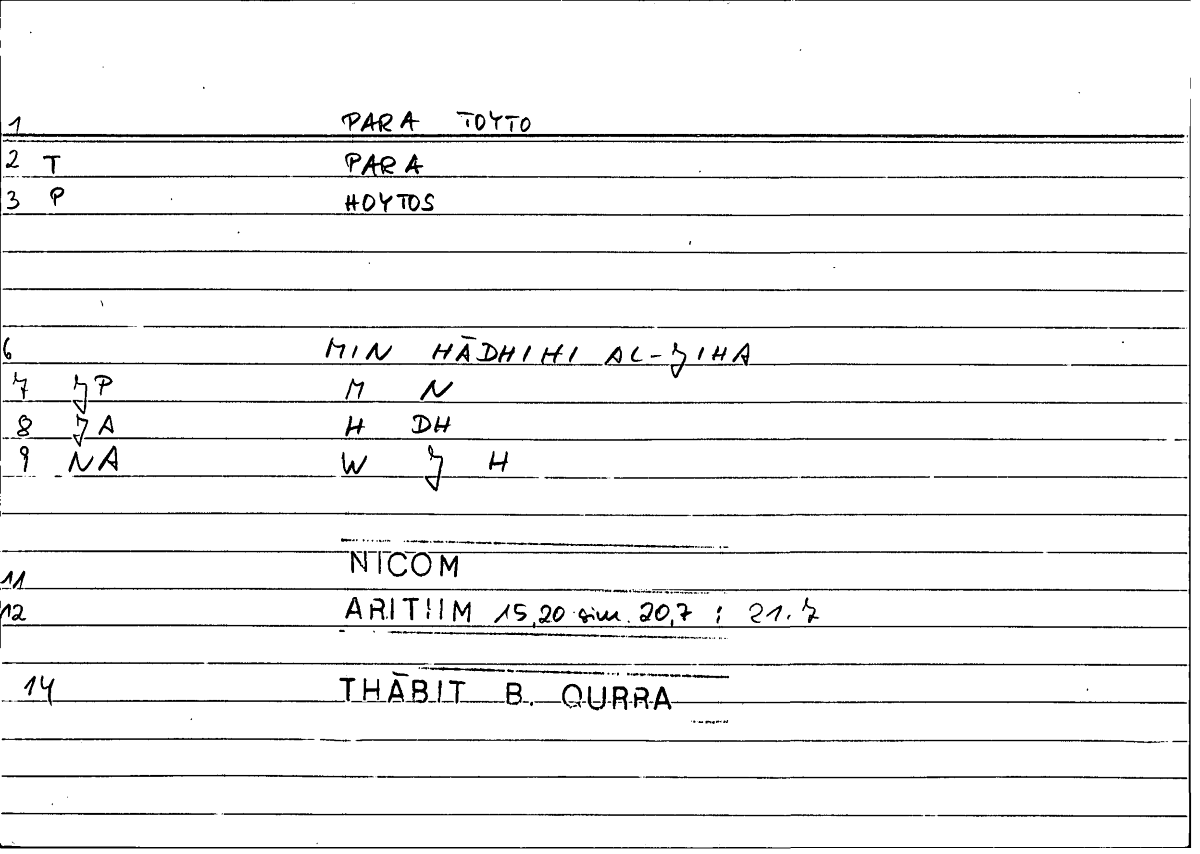 1 PARA TOYTO
2 T PARA
3 P HOYTOS
6 MIN HĀDHIHI AL-JIHA
7 JP M N
8 JA H DH
9 NA W J H
11 NICOM
12 ARITHM 15,20 sim. 20,7 ; 21.7
14 THĀBIT B. QURRA